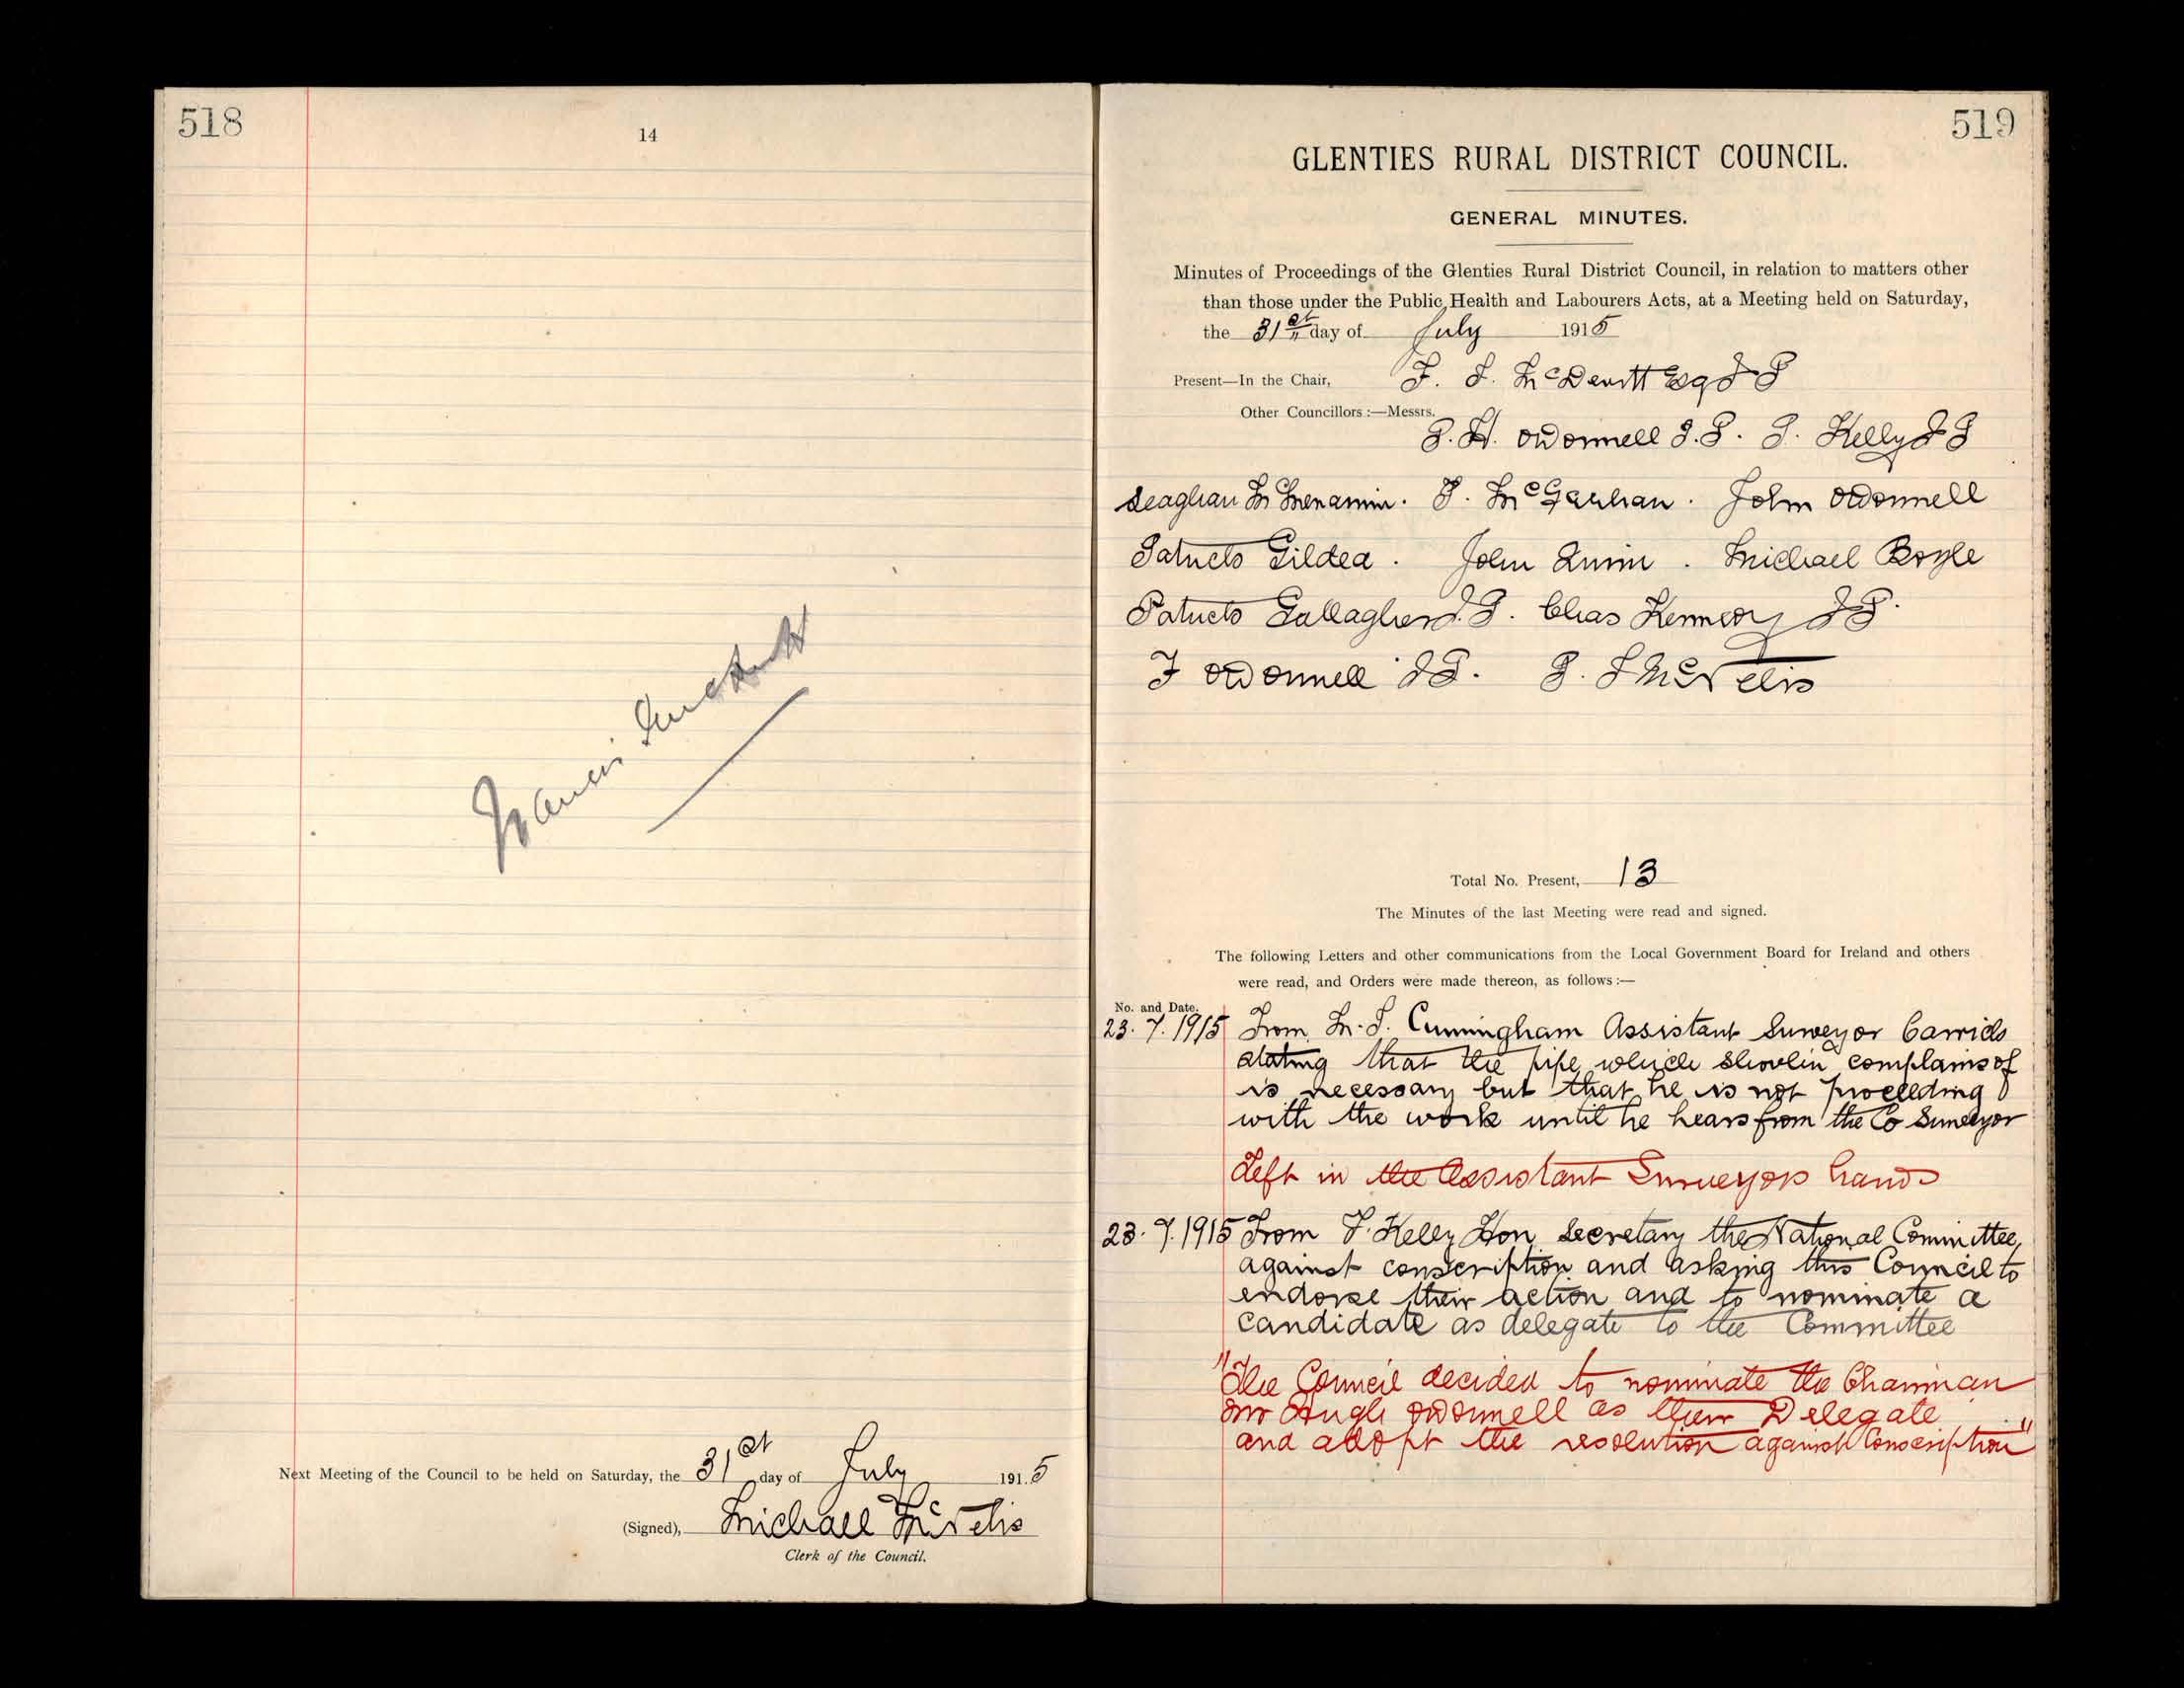 518
14
Francis
Next Meeting of the Council to be held on Saturday, the 31st day of July 1915
(Signed), Michael McNelis
Clerk of the Council.
519
GLENTIES RURAL DISTRICT COUNCIL.
GENERAL MINUTES.
Minutes of Proceedings of the Glenties Rural District Council, in relation to matters other
than those under the Public Health and Labourers Acts, at a Meeting held on Saturday,
the 31st day of July 1915
Present—In the Chair, F. J. McDevitt Esq J P
Other Councillors:—Messrs.
P. H. O'Donnell J.P. P. Kelly J P
Seaghan McMenamin. P. McGeehan. John O'Donnell
Patrick Gildea. John Quinn. Michael Boyle
Patrick Gallagher J.P. Chas Kennedy J P.
F O'Donnell J P. P. J McNelis
Total No. Present, 13
The Minutes of the last Meeting were read and signed.
The following Letters and other communications from the Local Government Board for Ireland and others
were read, and Orders were made thereon, as follows:—
No. and Date.
23. 7. 1915 From M. J. Cunningham Assistant Surveyor Carrick
stating that the pipe which Shovlin complains of
is necessary but that he is not proceeding
with the work until he hears from the Co Surveyor
Left in the Assistant Surveyors hands
23. 7. 1915 From T. Kelly Hon Secretary the National Committee
against conscription and asking this Council to
endorse their action and to nominate a
candidate as delegate to the Committee
"The Council decided to nominate the Chairman
Mr Hugh O'Donnell as their Delegate
and adopt the resolution against Conscription"